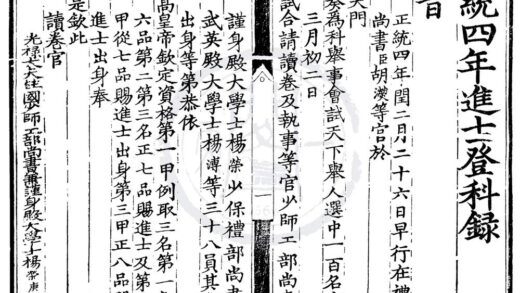 統四年進士登科録
旨
正統四年閏二月二十六日早行在禮
尚書臣胡濙等官於
天門
奏為科舉事會試天下舉人選中一百名
三月初二日
試合請讀卷及執事等官少師工部尚
謹身殿大學士楊榮少保禮部尚書
武英殿大學士楊溥等三十八員其
出身等第恭依
高皇帝欽定資格第一甲例取三名第一
六品第二第三名正七品賜進士及第
甲從七品賜進士出身第三甲正八品
進士出身奉
是欽此
讀卷官
光祿大夫柱國少師工部尚書兼謹身殿大學士楊榮庚